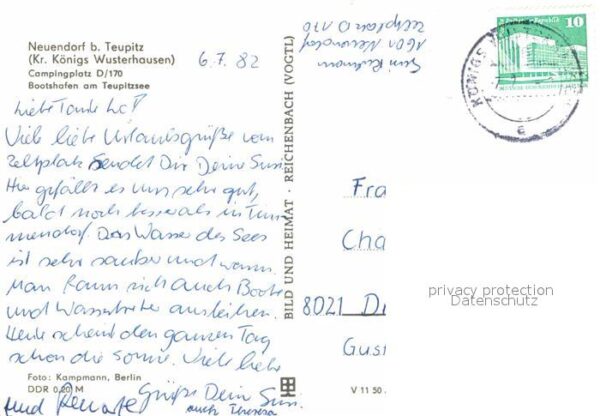 Neuendorf b. Teupitz
(Kr. Königs Wusterhausen)
Campingplatz D/170
Bootshafen am Teupitzsee
6.7.82
Viele liebe Urlaubsgrüße vom
Zeltplatz sendet Dir Deine Susi
Hier gefällt es uns sehr gut,
bald noch besser als in
mendorf. Das Wasser des Sees
ist sehr sauber und warm.
Man kann sich auch Boote
und Wassertreter ausleihen.
Heute scheint den ganzen Tag
schon die Sonne. Viele liebe
Grüße Deine Susi
und Renate
auch Theresa
Foto: Kampmann, Berlin
DDR 0,20 M
BILD UND HEIMAT · REICHENBACH (VOGTL)
V 11 50
1601 Neuendorf
Zeltplatz D 170
10
KÖNIGS
a
Fra
Cha
8021 Dr
Gust
privacy protection
Datenschutz